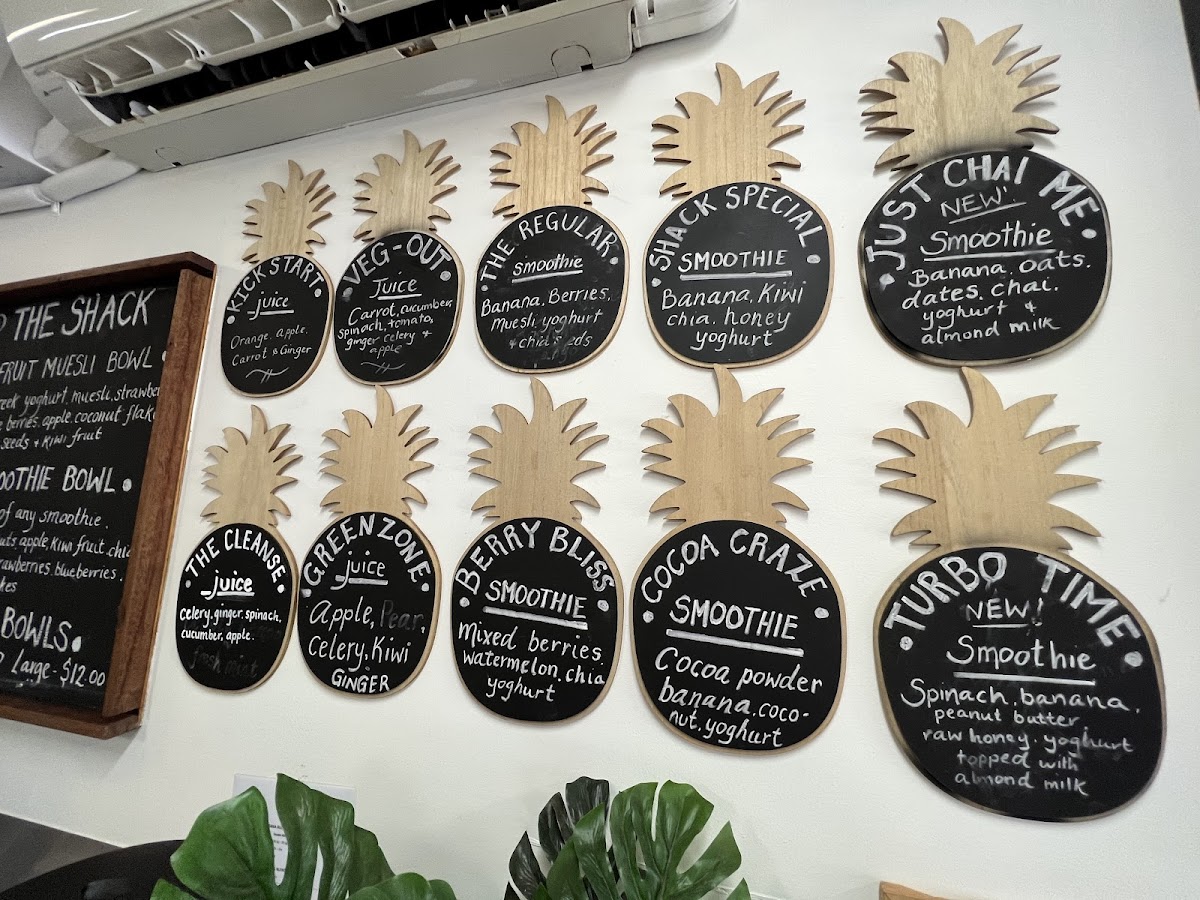 THE SHACK
FRUIT MUESLI BOWL
yoghurt, muesli, strawbe
berries, apple, coconut flak
seeds + kiwi fruit
BOWL
of any smoothie.
apple, kiwi fruit, chia
blueberries.
BOWLS
Large - $12.00
KICK START
juice
Orange. apple.
Carrot & Ginger
VEG-OUT
Juice
Carrot, cucumber,
spinach, tomato,
ginger celery &
apple
THE REGULAR
smoothie
Banana. Berries.
Muesli. yoghurt
& chia s eds
SHACK SPECIAL
SMOOTHIE
Banana, Kiwi
chia. honey
yoghurt
JUST CHAI ME
NEW!
Smoothie
Banana. oats.
dates. chai.
yoghurt &
almond milk
THE CLEANSE
juice
celery. ginger. spinach,
cucumber, apple.
fresh mint
GREEN ZONE
juice
Apple, Pear,
Celery, Kiwi
GINGER
BERRY BLISS
SMOOTHIE
Mixed berries
watermelon, chia
yoghurt
COCOA CRAZE
SMOOTHIE
Cocoa powder
banana, coco-
nut, yoghurt
TURBO TIME
NEW!
Smoothie
Spinach, banana,
peanut butter,
raw honey, yoghurt
topped with
almond milk